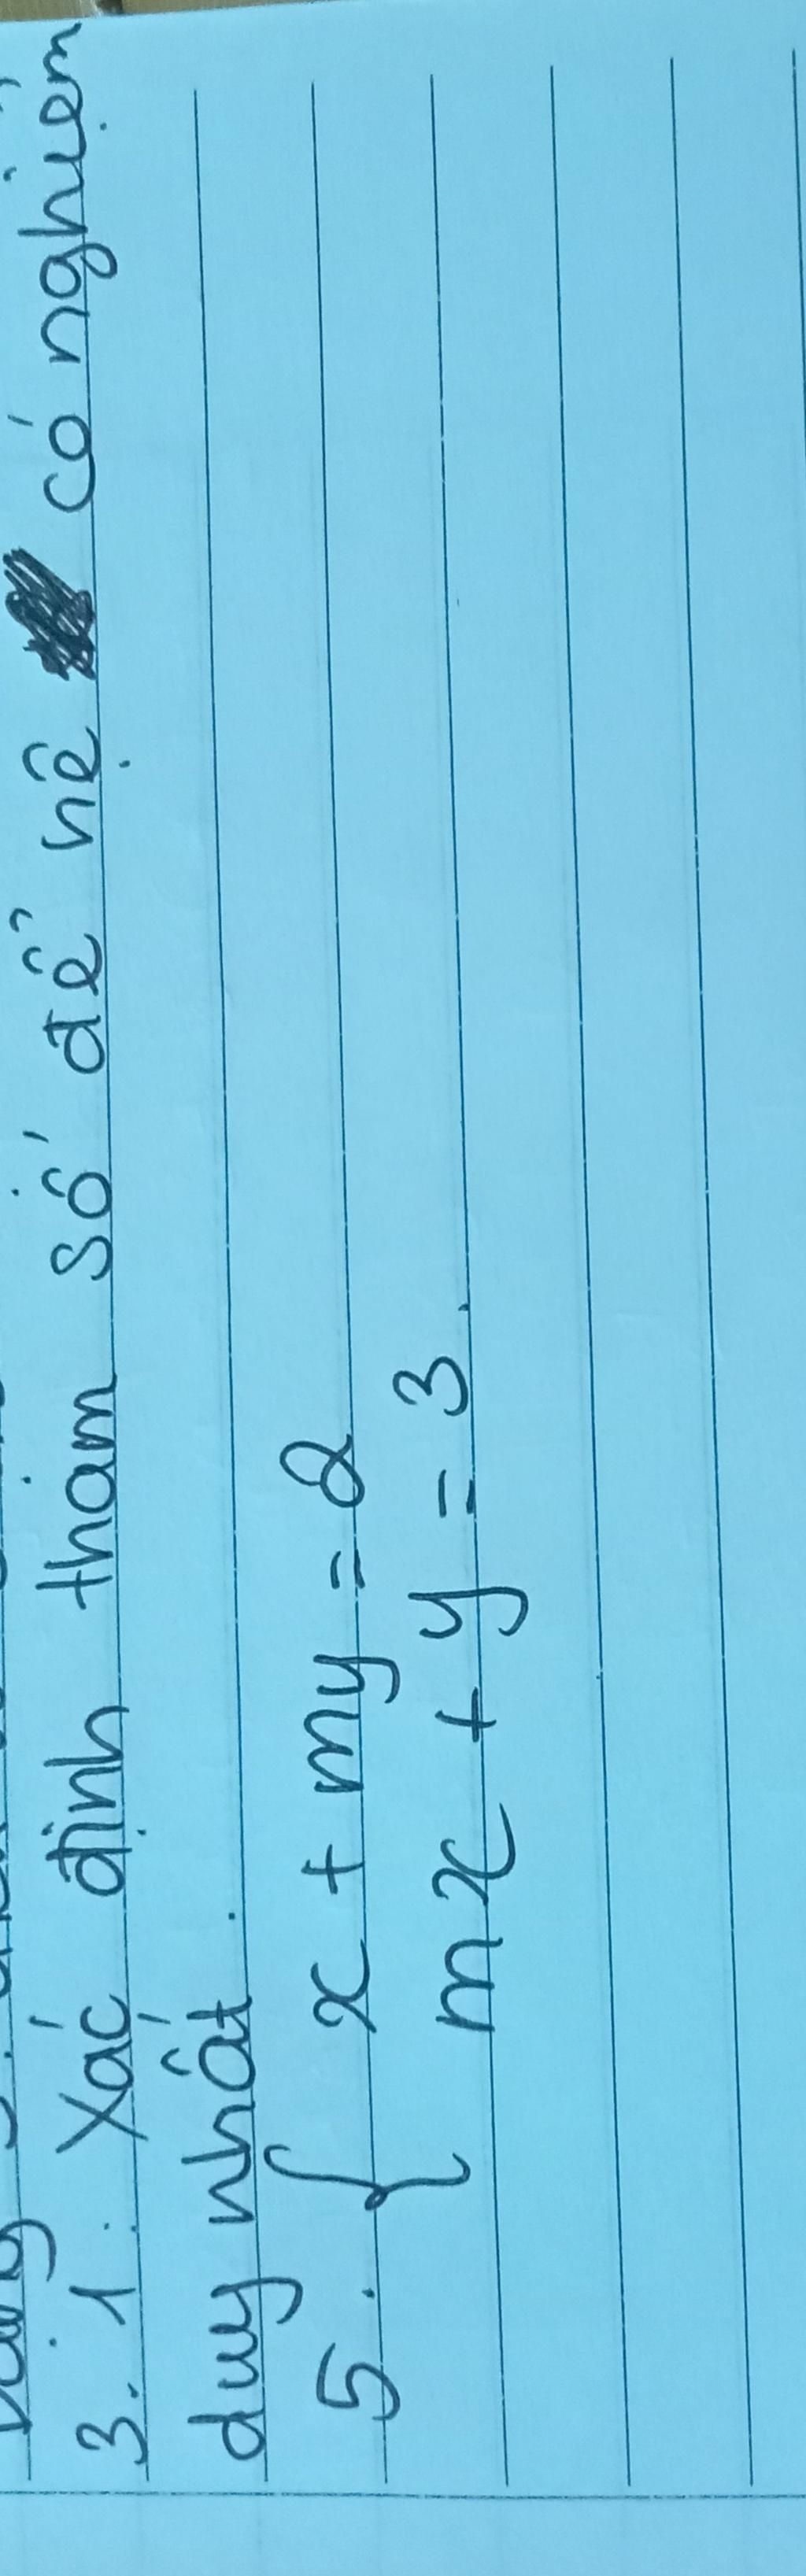 3.1. Xác định tham số để hệ có nghiệm
duy nhất.
5. { x + my = 2
mx + y = 3.